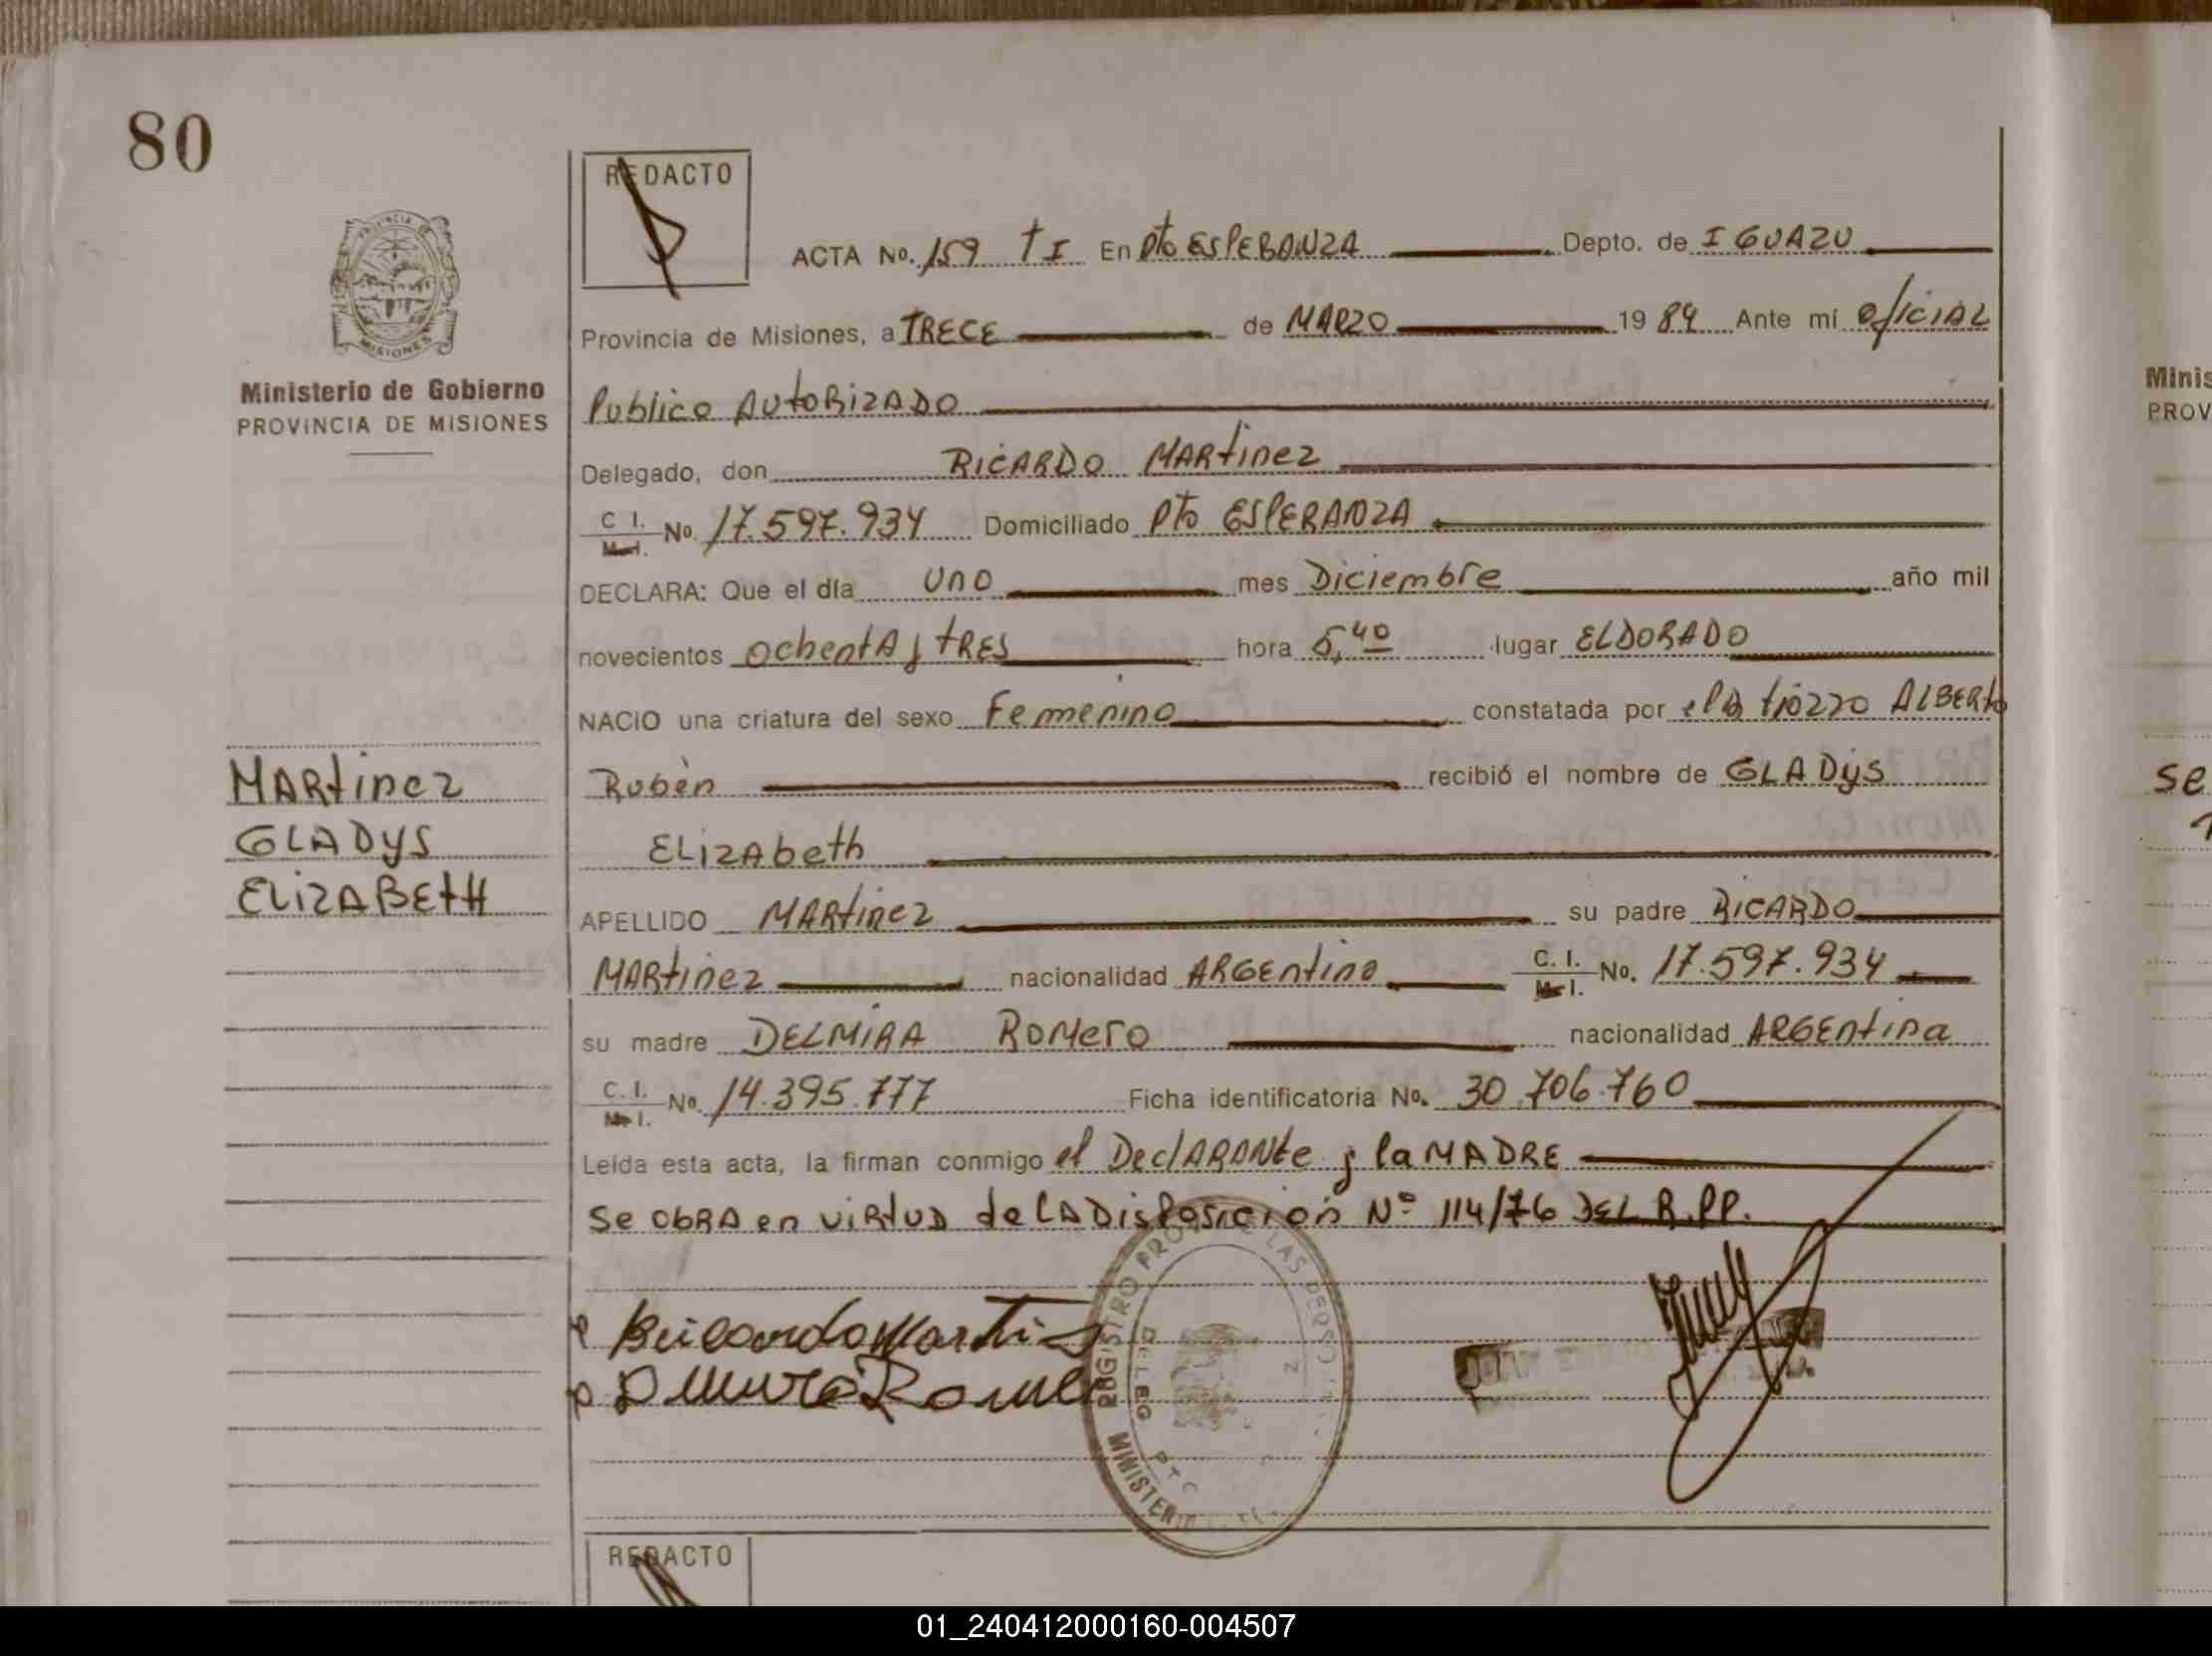 80
REDACTO
ACTA No. 159 tI En Pto ESPERANZA Depto. de IGUAZU
Provincia de Misiones, a TRECE de MARZO 1984 Ante mí oficiAL
Publico AUtoRiZADO
PROVINCIA
MISIONES
Ministerio de Gobierno
PROVINCIA DE MISIONES
Delegado, don RiCARDO MARtinez
C I. M. I. No. 17.597.934 Domiciliado Pto ESPERANZA
DECLARA: Que el día uno mes Diciembre año mil
novecientos ochentA y tRES hora 5,40 lugar ELDORADO
NACIO una criatura del sexo Femenino constatada por ALBERto
Rubén recibió el nombre de GLADys
ELizAbeth
MARtinez
GLADYS
ELiZABEtH
APELLIDO MARtinez su padre RiCARDO
MARtinez nacionalidad ARGEntino C. I. M. I. No. 17.597.934
su madre DELMiRA ROMEro nacionalidad ARGEntina
C. I. M. I. No. 14.395.777 Ficha identificatoria No. 30.706.760
Leída esta acta, la firman conmigo el DeclARANte y la MADRE
Se obRA en viRtuD de LA Disposicion Nº 114/76 DEL R.PP.
REGISTRO PROV. LAS PERSO
DELEG
MINISTERIO
JUAN
REDACTO
Minis
PROV
Se
01_240412000160-004507